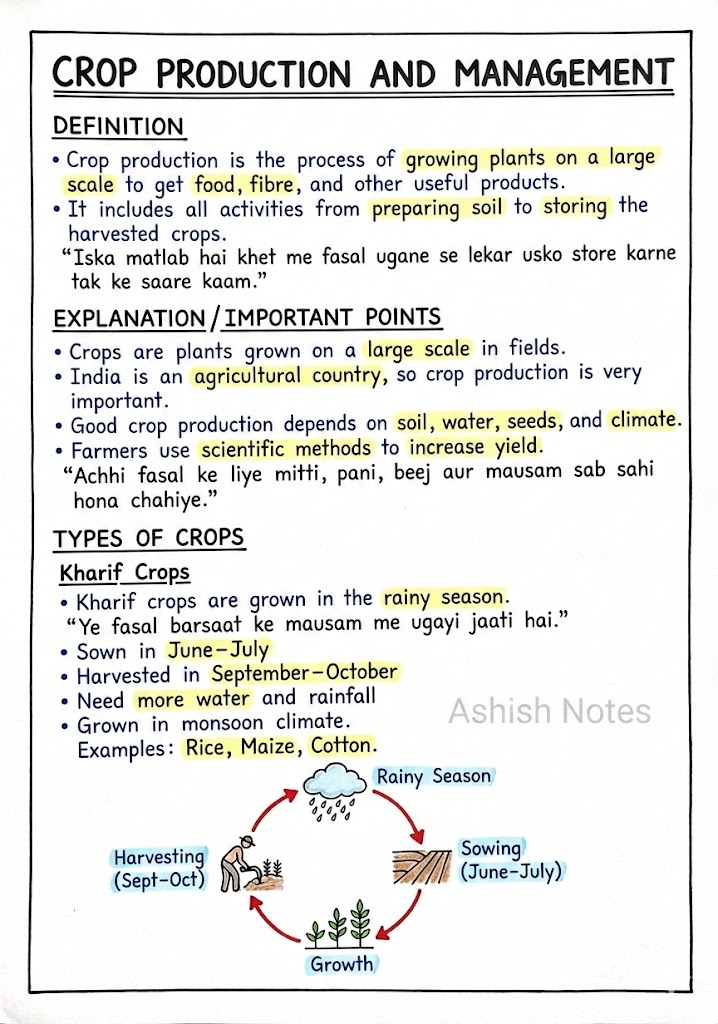 CROP PRODUCTION AND MANAGEMENT
DEFINITION
• Crop production is the process of growing plants on a large
scale to get food, fibre, and other useful products.
• It includes all activities from preparing soil to storing the
harvested crops.
“Iska matlab hai khet me fasal ugane se lekar usko store karne
tak ke saare kaam.”
EXPLANATION/IMPORTANT POINTS
• Crops are plants grown on a large scale in fields.
• India is an agricultural country, so crop production is very
important.
• Good crop production depends on soil, water, seeds, and climate.
• Farmers use scientific methods to increase yield.
“Achhi fasal ke liye mitti, pani, beej aur mausam sab sahi
hona chahiye.”
TYPES OF CROPS
Kharif Crops
• Kharif crops are grown in the rainy season.
“Ye fasal barsaat ke mausam me ugayi jaati hai.”
• Sown in June–July
• Harvested in September–October
• Need more water and rainfall
• Grown in monsoon climate.
Examples: Rice, Maize, Cotton.
Ashish Notes
Rainy Season
Sowing
(June–July)
Growth
Harvesting
(Sept–Oct)